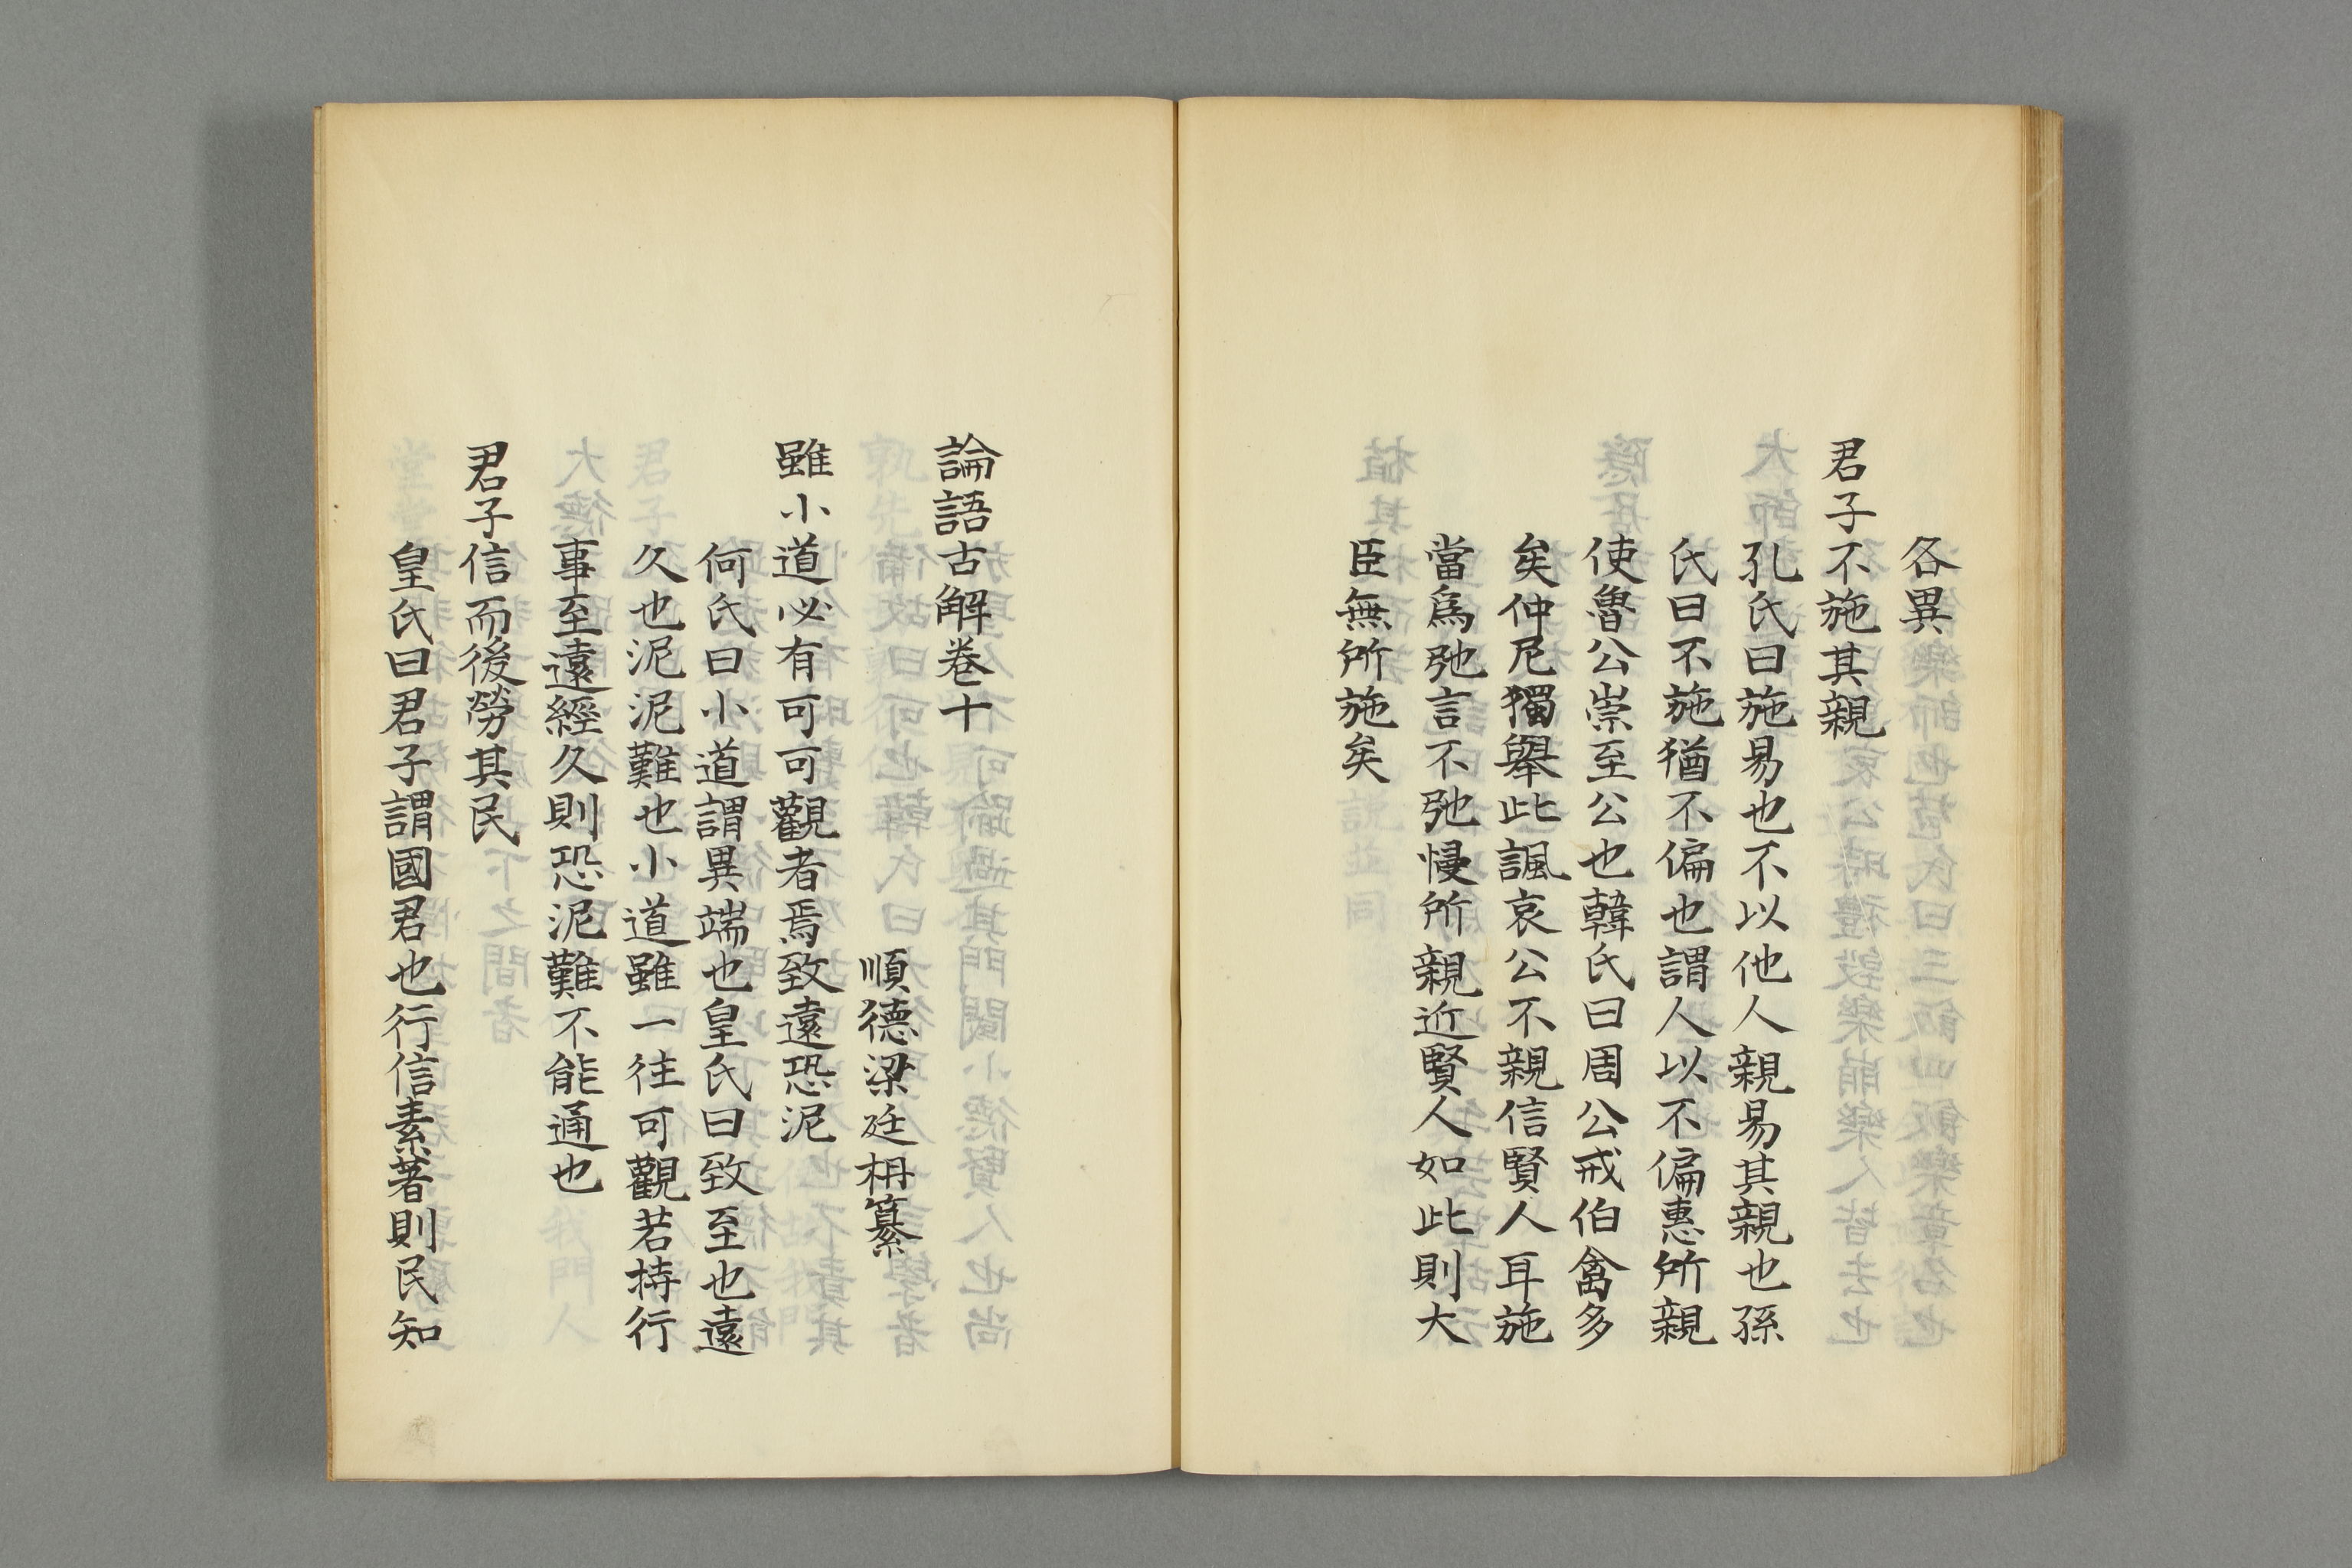 各異
君子不施其親
孔氏曰施易也不以他人親易其親也孫
氏曰不施猶不偏也謂人以不偏惠所親
使魯公崇至公也韓氏曰周公戒伯禽多
矣仲尼獨舉此諷哀公不親信賢人耳施
當爲弛言不弛慢所親近賢人如此則大
臣無所施矣
論語古解卷十
順德梁廷枏纂
雖小道必有可可觀者焉致遠恐泥
何氏曰小道謂異端也皇氏曰致至也遠
久也泥泥難也小道雖一往可觀若持行
事至遠經久則恐泥難不能通也
君子信而後勞其民
皇氏曰君子謂國君也行信素著則民知